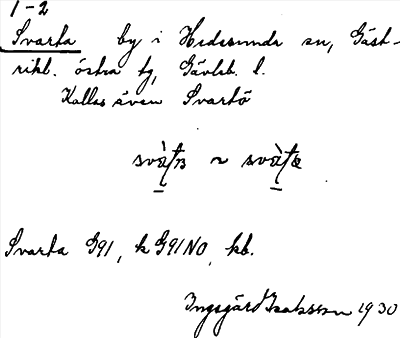 1-2
Svarta by i Hedesunda sn, Gäst-
rikl. östra tg, Gävleb. l.
Kallas även Svartö
Svarta G91, k G91NO, kb.
Ingegärd Isaksson 1930